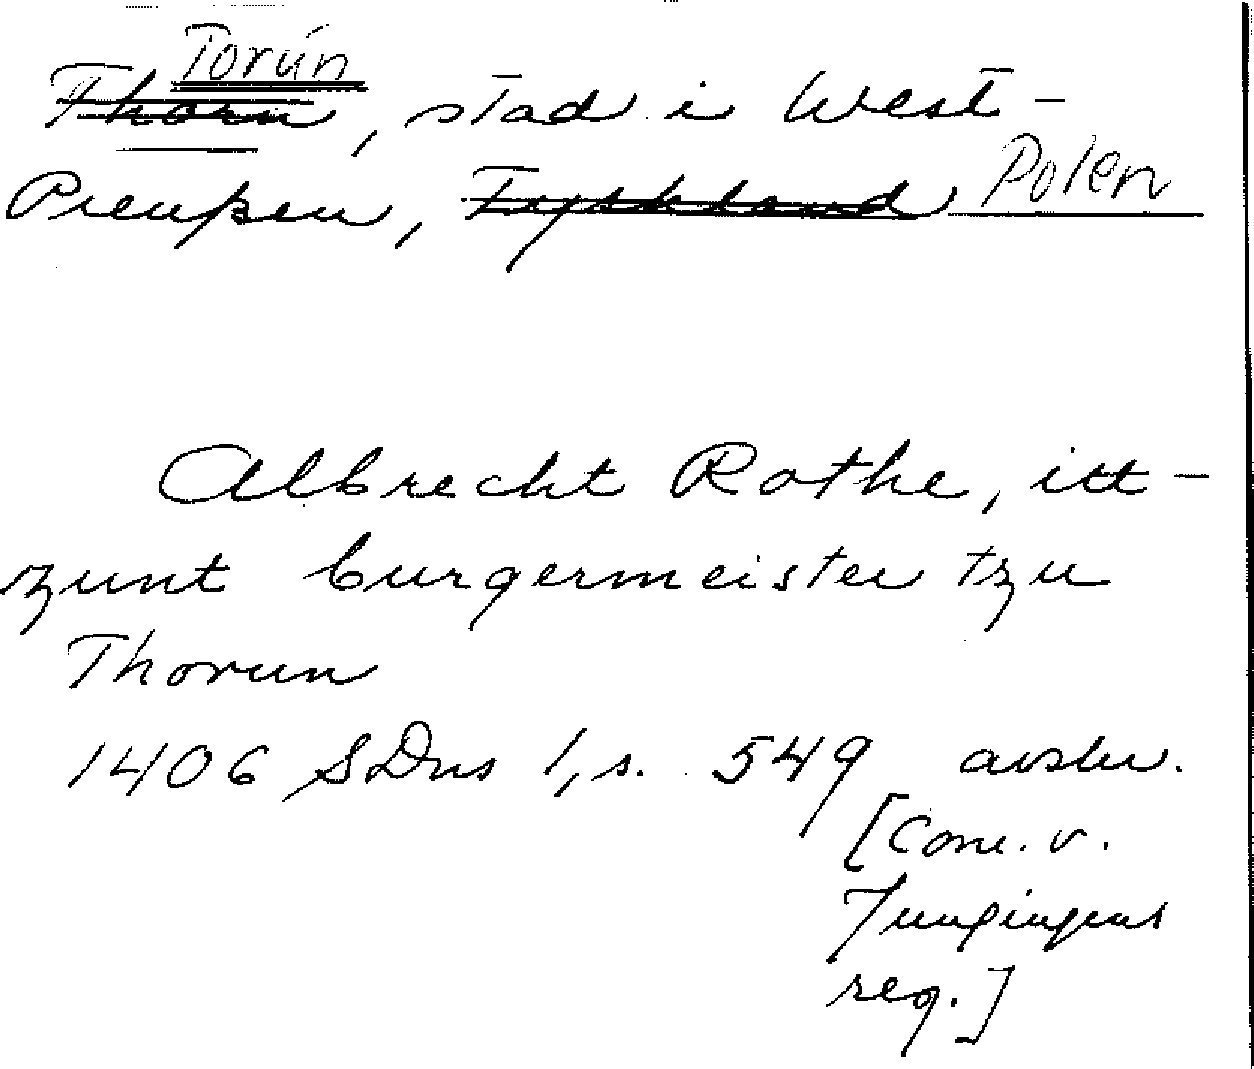 Torún
Thorn, stad i West-
Preuβen, Tyskland Polen
Albrecht Rothe, itt-
zunt burgermeister tzu
Thorun
1406 SDns 1, s. 549 avskr.
[Conr. v.
Jungingens
reg.]